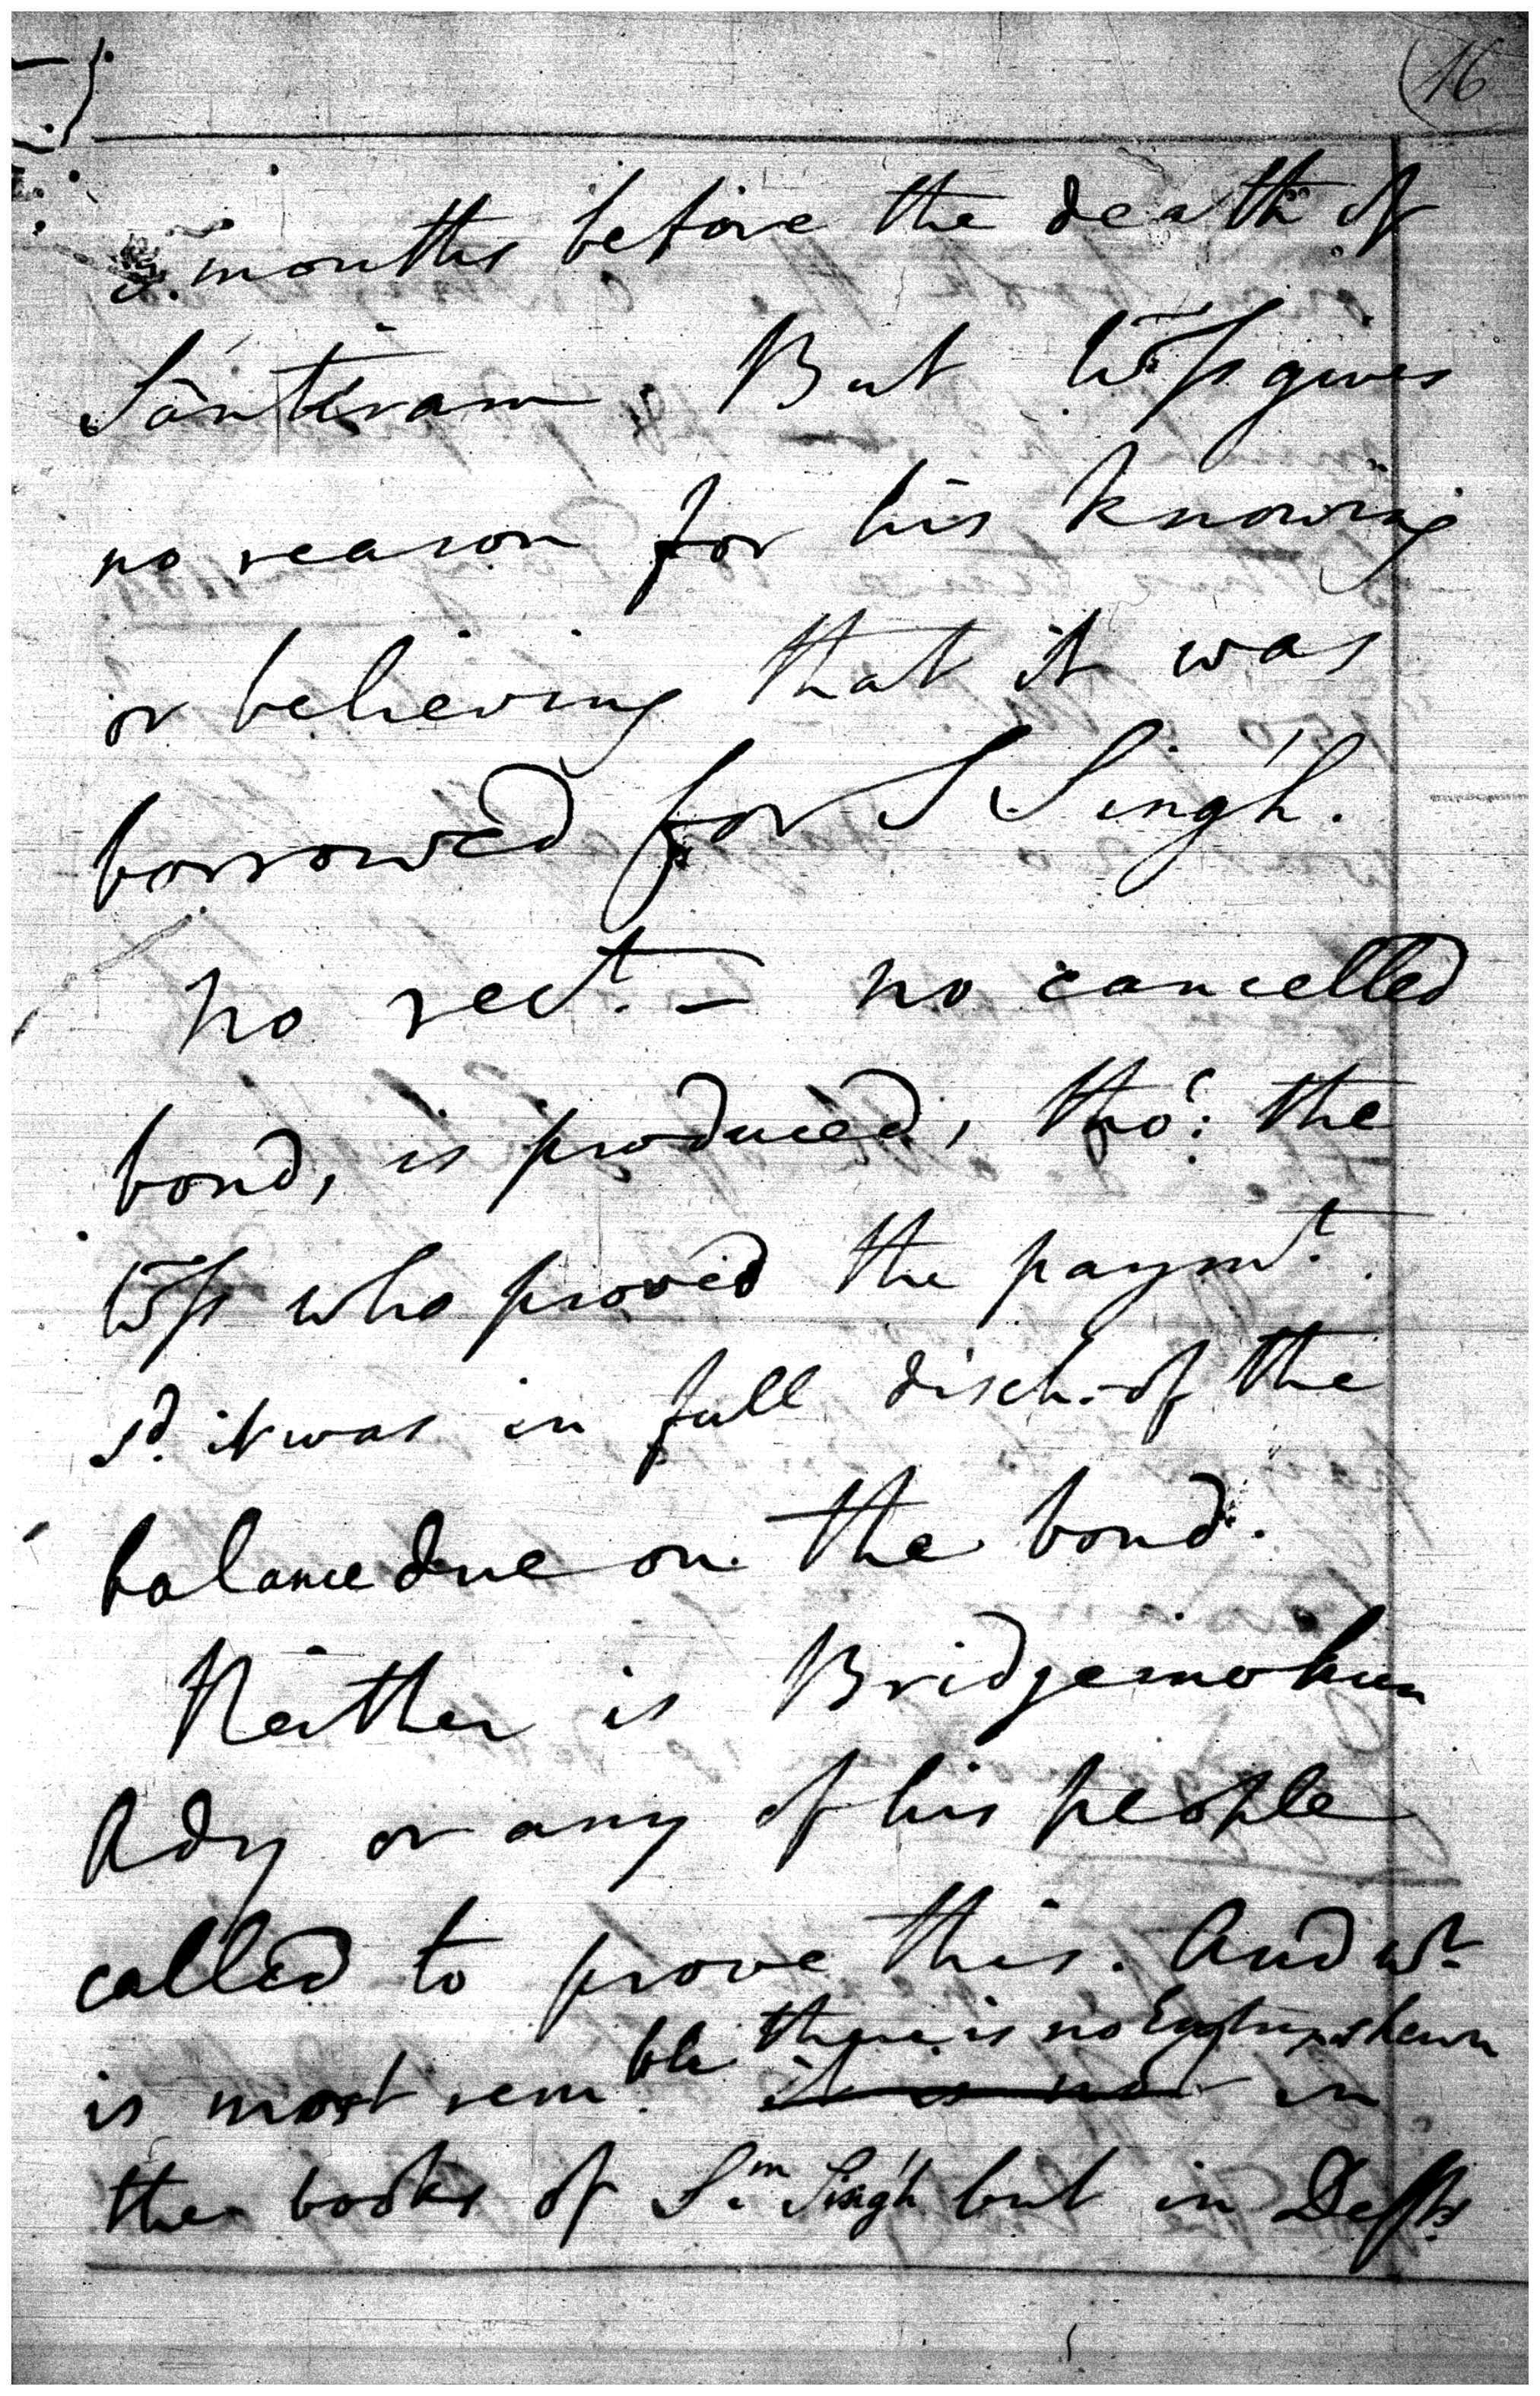 16
months before the death of
Santiram. But Wss gives
no reason for his knowing
or believing that it was
borrowed for S Singh.
No rect. – no cancelled
bond, is produced, tho': the
Wss who proved the paymt.
sd. it was in full disch. of the
balance due on the bond.
Neither is Bridgemohun
Rdy or any of his people
called to prove this. And wt
there is no Entry shewn
is most remble it is not in
the books of S.m Singh but in Defts